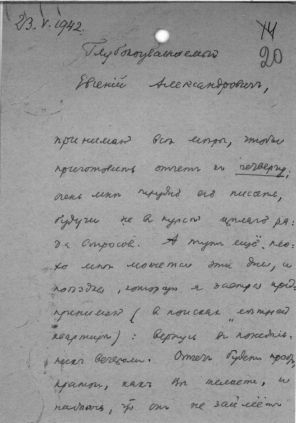 23.V.1942.
14
20
Глубокоуважаемый
Евгеній Александровичъ,
принимаю всѣ мѣры, чтобы
приготовить отчетъ къ четвергу;
очень мнѣ трудно его писать,
будучи не въ курсѣ цѣлаго ря-
да вопросовъ. А тутъ ещё пло-
хо мнѣ можется эти дни, и
поѣздка, которую я завтра пред-
принимаю (въ поискахъ "лѣтней
квартиры"): вернусь въ понедѣль-
никъ вечеромъ. Отчетъ будетъ
кратокъ, какъ Вы желаете, и
надѣюсь, что онъ не займётъ